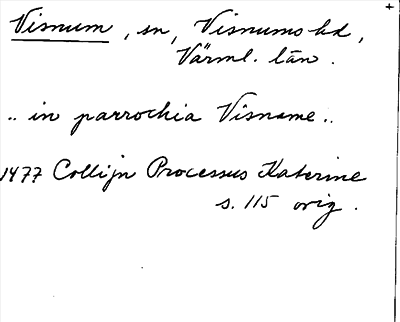 Visnum, sn, Visnums hd,
Värml. län.
.. in parrochia Visname..
1477 Collijn Processus Katerine
s. 115 orig.